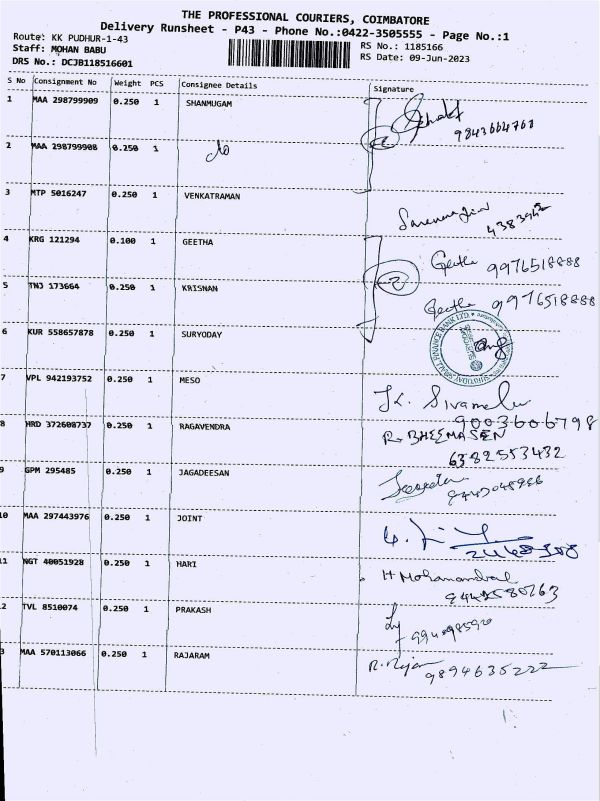 THE PROFESSIONAL COURIERS, COIMBATORE
Delivery Runsheet - P43 - Phone No.:0422-3505555 - Page No.:1
Route: KK PUDHUR-1-43
Staff: MOHAN BABU
DRS No.: DCJB118516601
RS No.: 1185166
RS Date: 09-Jun-2023
S No Consignment No Weight PCS Consignee Details Signature
1 MAA 298799909 0.250 1 SHANMUGAM
9843664768
2 MAA 298799908 0.250 1 do
3 MTP 5016247 0.250 1 VENKATRAMAN
4 KRG 121294 0.100 1 GEETHA Geetha 9976518888
5 TNJ 173664 0.250 1 KRISNAN Geetha 9976518888
6 KUR 558657878 0.250 1 SURYODAY
7 VPL 942193752 0.250 1 MESO
9003606798
8 HRD 372608737 0.250 1 RAGAVENDRA R. BHEEMASEN
6382553432
9 GPM 295485 0.250 1 JAGADEESAN
10 MAA 297443976 0.250 1 JOINT
11 NGT 40051928 0.250 1 HARI
2 TVL 8510074 0.250 1 PRAKASH
3 MAA 570113066 0.250 1 RAJARAM R. Rajan 9894635222